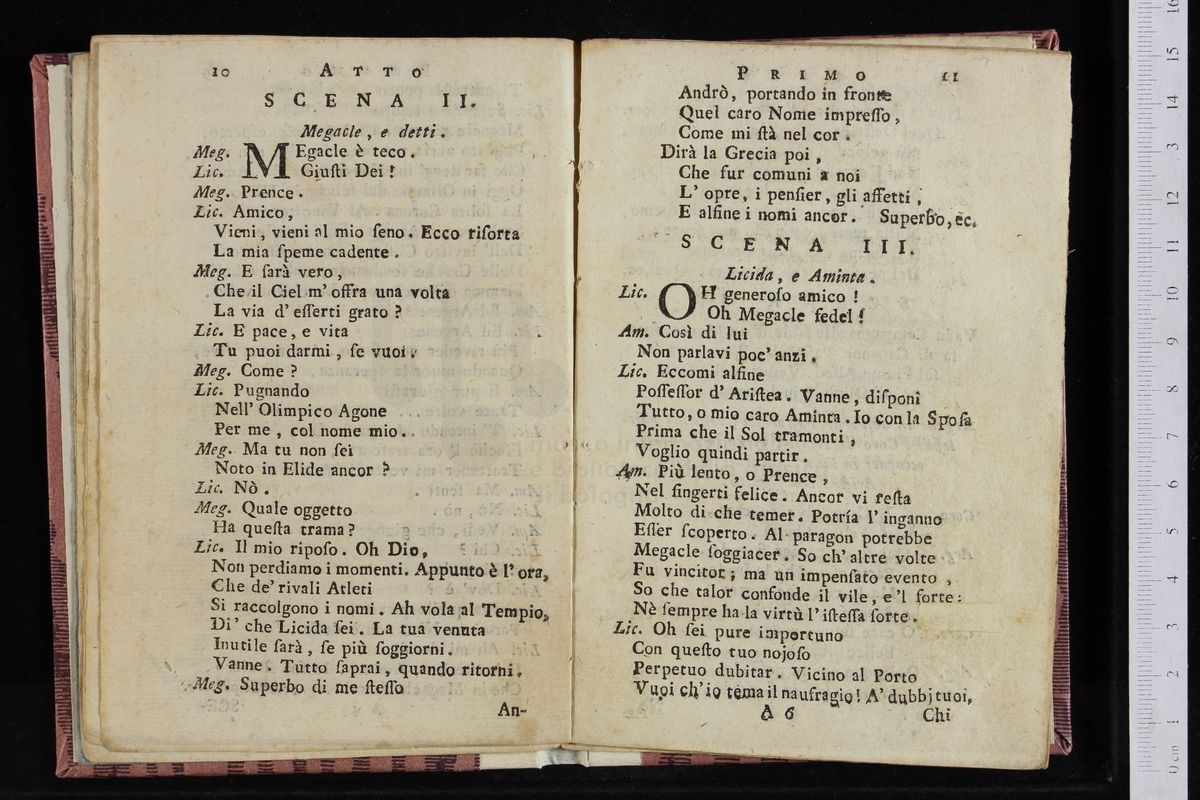 10 ATTO
SCENA II.
Megacle, e detti.
Meg. MEgacle è teco.
Lic. Giuſti Dei!
Meg. Prence.
Lic. Amico,
Vieni, vieni al mio ſeno. Ecco riſorta
La mia ſpeme cadente.
Meg. E ſarà vero,
Che il Ciel m' offra una volta
La via d' eſſerti grato?
Lic. E pace, e vita
Tu puoi darmi, ſe vuoi.
Meg. Come?
Lic. Pugnando
Nell' Olimpico Agone
Per me, col nome mio..
Meg. Ma tu non ſei
Noto in Elide ancor?
Lic. Nò.
Meg. Quale oggetto
Ha queſta trama?
Lic. Il mio ripoſo. Oh Dio,
Non perdiamo i momenti. Appunto è l' ora,
Che de' rivali Atleti
Si raccolgono i nomi. Ah vola al Tempio,
Di' che Licida ſei. La tua venuta
Inutile ſarà, ſe più ſoggiorni.
Vanne. Tutto ſaprai, quando ritorni.
Meg. Superbo di me ſteſſo
An-
PRIMO 11
Andrò, portando in fronte
Quel caro Nome impreſſo,
Come mi ſtà nel cor.
Dirà la Grecia poi,
Che fur comuni a noi
L' opre, i penſier, gli affetti,
E alfine i nomi ancor. Superbo, ec.
SCENA III.
Licida, e Aminta.
Lic. OH generoſo amico!
Oh Megacle fedel!
Am. Così di lui
Non parlavi poc' anzi.
Lic. Eccomi alfine
Poſſeſſor d' Ariſtea. Vanne, diſponi
Tutto, o mio caro Aminta. Io con la Spoſa
Prima che il Sol tramonti,
Voglio quindi partir.
Am. Più lento, o Prence,
Nel fingerti felice. Ancor vi reſta
Molto di che temer. Potría l' inganno
Eſſer ſcoperto. Al paragon potrebbe
Megacle ſoggiacer. So ch' altre volte
Fu vincitor; ma un impenſato evento,
So che talor confonde il vile, e 'l forte:
Nè ſempre ha la virtù l' iſteſſa ſorte.
Lic. Oh ſei pure importuno
Con queſto tuo nojoſo
Perpetuo dubitar. Vicino al Porto
Vuoi ch' io tema il naufragio! A' dubbj tuoi,
A 6 Chi
0 cm 1 2 3 4 5 6 7 8 9 10 11 12 13 14 15 16